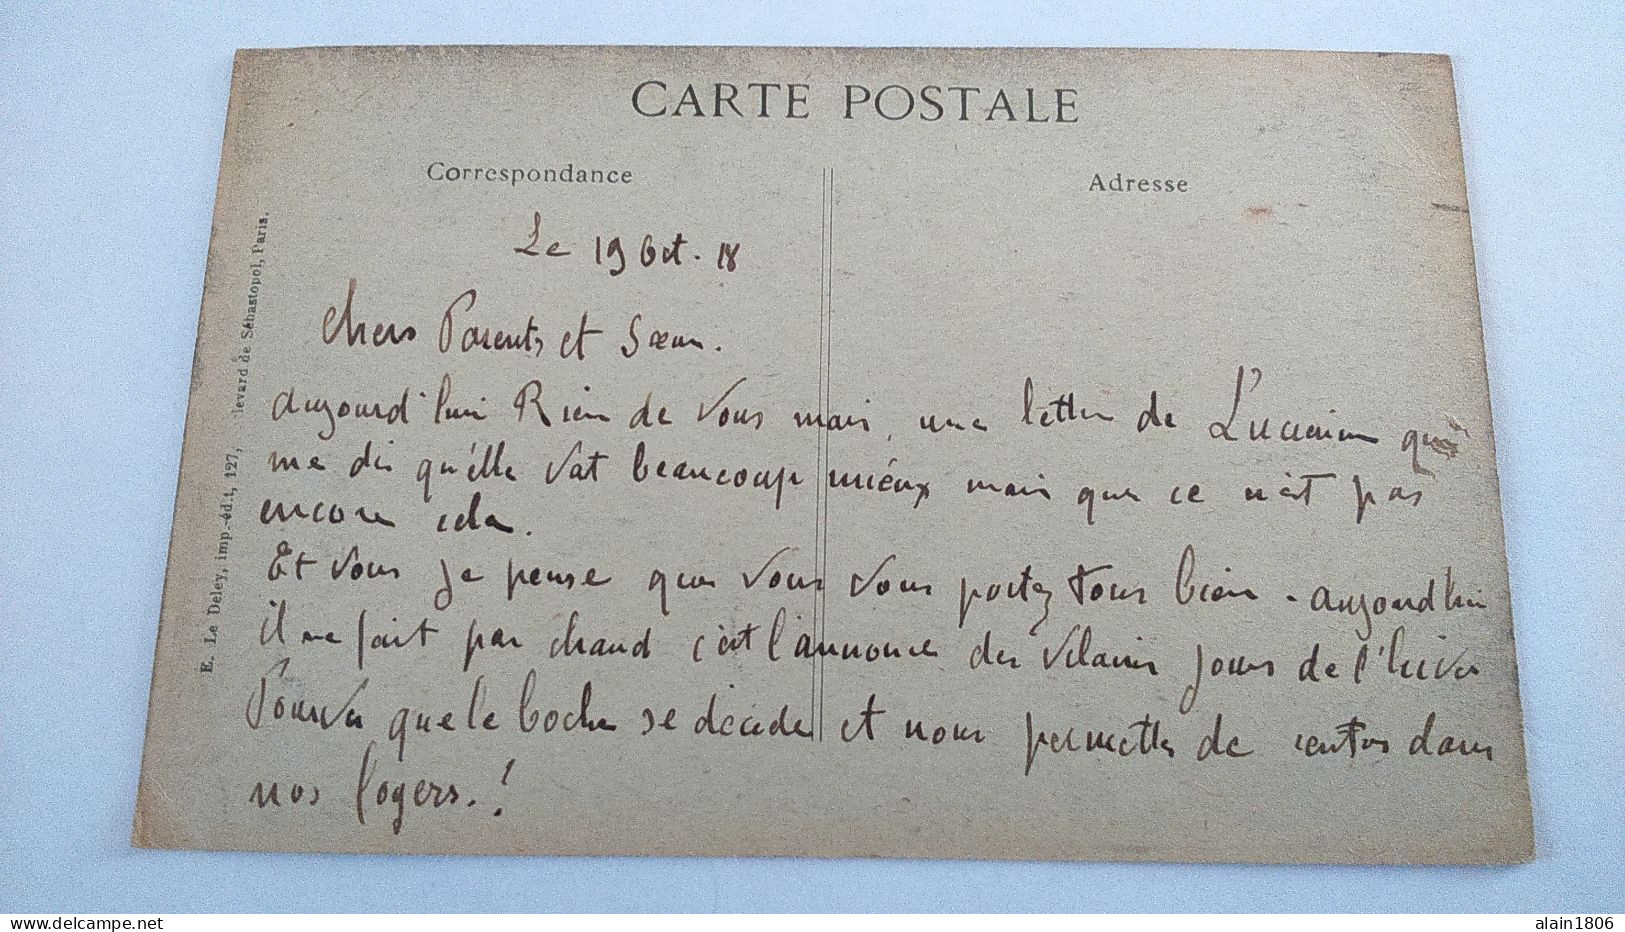 CARTE POSTALE
Correspondance
Adresse
Le 19 Oct. 18
Chers Parents et Sœur.
aujourd'hui Rien de Vous mais, une letter de Lucienne qui
me dis qu'élle Vat beaucoup miéux mais que ce n'est pas
encore cela.
Et Vous je pense que Vous Vous portez tous bien - aujourdhui
il ne fait pas chaud c'est l'annonce des Vilains jours de l'hiver
Pourvu que le boche se décide et nous permette de rentrer dans
nos foyers.!
E. Le Deley, imp.-éd.t, 127, levard de Sébastopol, Paris.
www.delcampe.net
alain1806